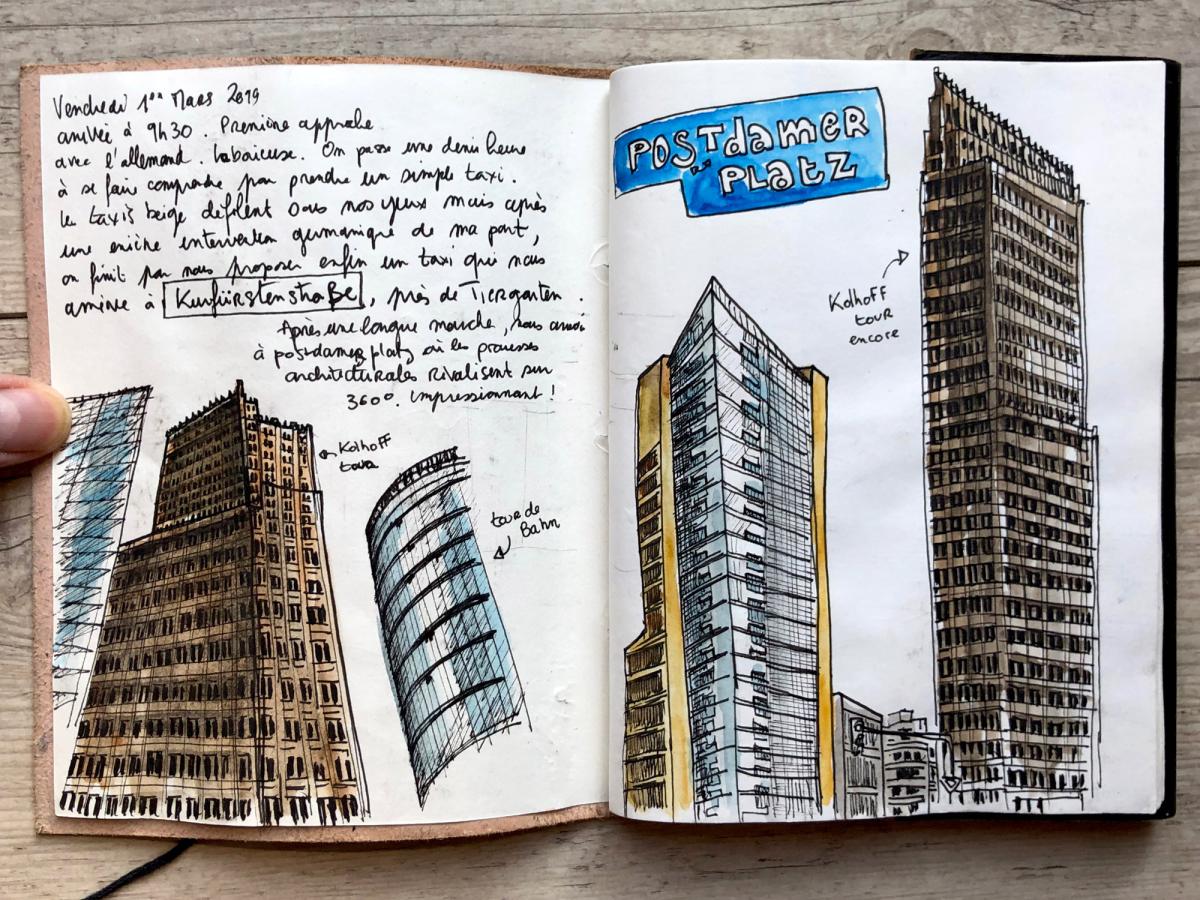 Vendredi 1er Mars 2019
arrivée à 9h30. Première approche
avec l'allemand. Laborieuse. On passe une demi heure
à se faire comprendre pour prendre un simple taxi.
le taxis beige défilent sous nos yeux mais après
une enième intervention germanique de ma part,
on finit par nous proposer enfin un taxi qui nous
amène à Kurfürstenstraße, près de Tiergarten.
Après une longue marche, nous
à postdamer platz où les prouesses
architecturales rivalisent sur
360°. Impressionnant !
Kolhoff
tour
tour de
Bahn
POSTdamer
PLatZ
Kolhoff
tour
encore